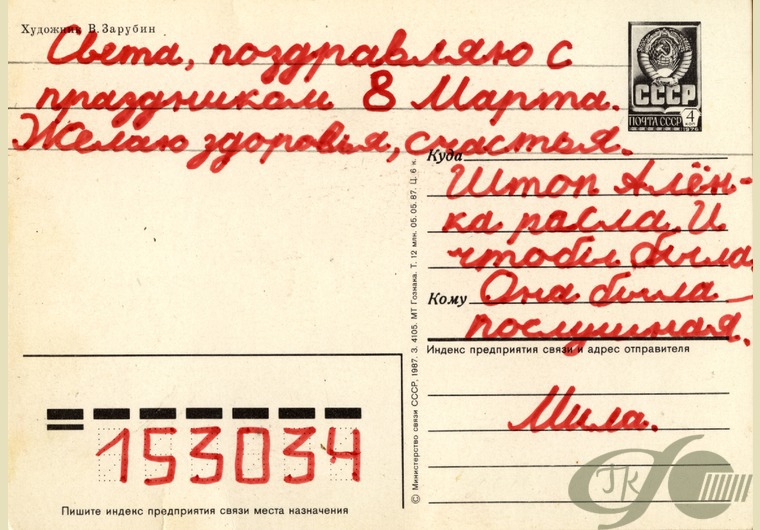 Художник В. Зарубин
Света, поздравляю с
праздником 8 Марта.
Желаю здоровья, счастья.
СССР
ПОЧТА СССР
4
коп
1976
Куда
Штоп Алён-
ка расла. И
чтобы была
Кому
Она была
послушная.
Индекс предприятия связи и адрес отправителя
Мила.
153034
Пишите индекс предприятия связи места назначения
© Министерство связи СССР, 1987. З. 4105. МТ Гознака. Т. 12 млн. 05.05.87. Ц. 6 к.
ГК